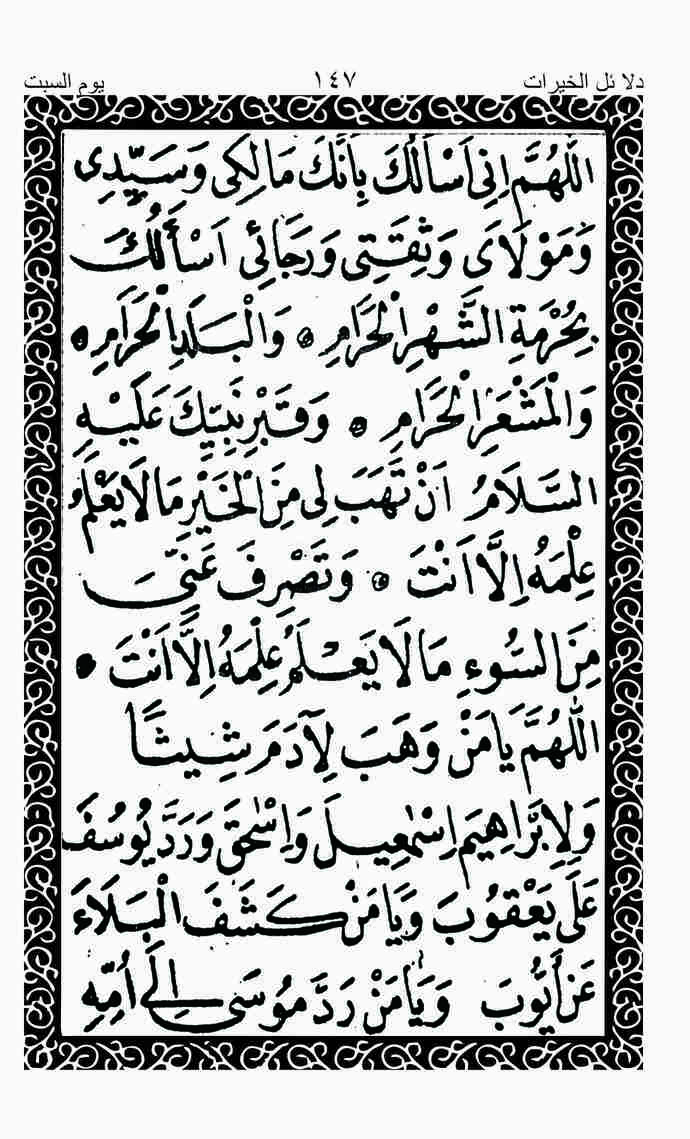 دلا ئل الخيرات ١٤٧ يوم السبت
اَللّٰهُمَّ اِنِّى اَسْاَلُكَ بِاَنَّكَ مَالِكِى وَسَيِّدِى
وَمَوْلَاىَ وَثِقَتِى وَرَجَائِى اَسْأَلُكَ
بِحُرْمَةِ الشَّهْرِ الْحَرَامِ ۞ وَالْبَلَدِ الْحَرَامِ ۞
وَالْمَشْعَرِ الْحَرَامِ ۞ وَقَبْرِ نَبِيِّكَ عَلَيْهِ
السَّلَامُ اَنْ تَهَبَ لِى مِنَ الْخَيْرِ مَا لَا يَعْلَمُ
عِلْمَهُ اِلَّا اَنْتَ ۞ وَتَصْرِفَ عَنِّى
مِنَ السُّوءِ مَا لَا يَعْلَمُ عِلْمَهُ اِلَّا اَنْتَ ۞
اَللّٰهُمَّ يَا مَنْ وَهَبَ لِآدَمَ شِيثًا
وَلِاِبْرَاهِيمَ اِسْمٰعِيلَ وَاِسْحٰقَ وَرَدَّ يُوسُفَ
عَلَى يَعْقُوبَ وَيَا مَنْ كَشَفَ الْبَلَاءَ
عَنْ أَيُّوبَ وَيَا مَنْ رَدَّ مُوسَى اِلَى اُمِّهِ